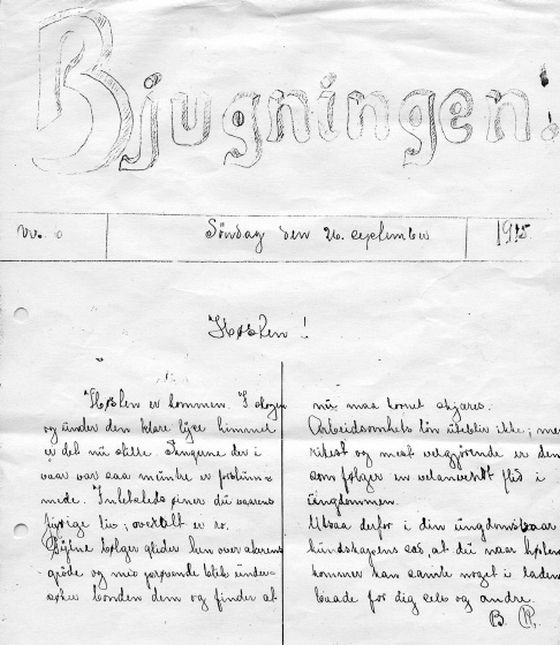 Bjugningen!
nr. 6
Søndag den 26. september
1915.
Høsten!
Høsten er kommen. I skogen
og under den klare lyse himmel
er det nu stille. Sangerne der i
vaar var saa muntre er forstum-
mede. Intetsteds finer du vaarens
fyrige liv; overalt er ro.
bølger glider hen over akerens
grøde og med prøvende blik under-
søker bonden dem og finder at
nu maa kornet skjæres.
Arbeidsomhets løn uteblir ikke; men
rikest og mest vegjörende er den
som følger en velanvendt flid i
ungdommen.
Utsaa derfor i din ungdomsvaar
kundskapens sæd, at du naar høsten
kommer kan samle noget i laden
baade for dig selv og andre.
B. R.